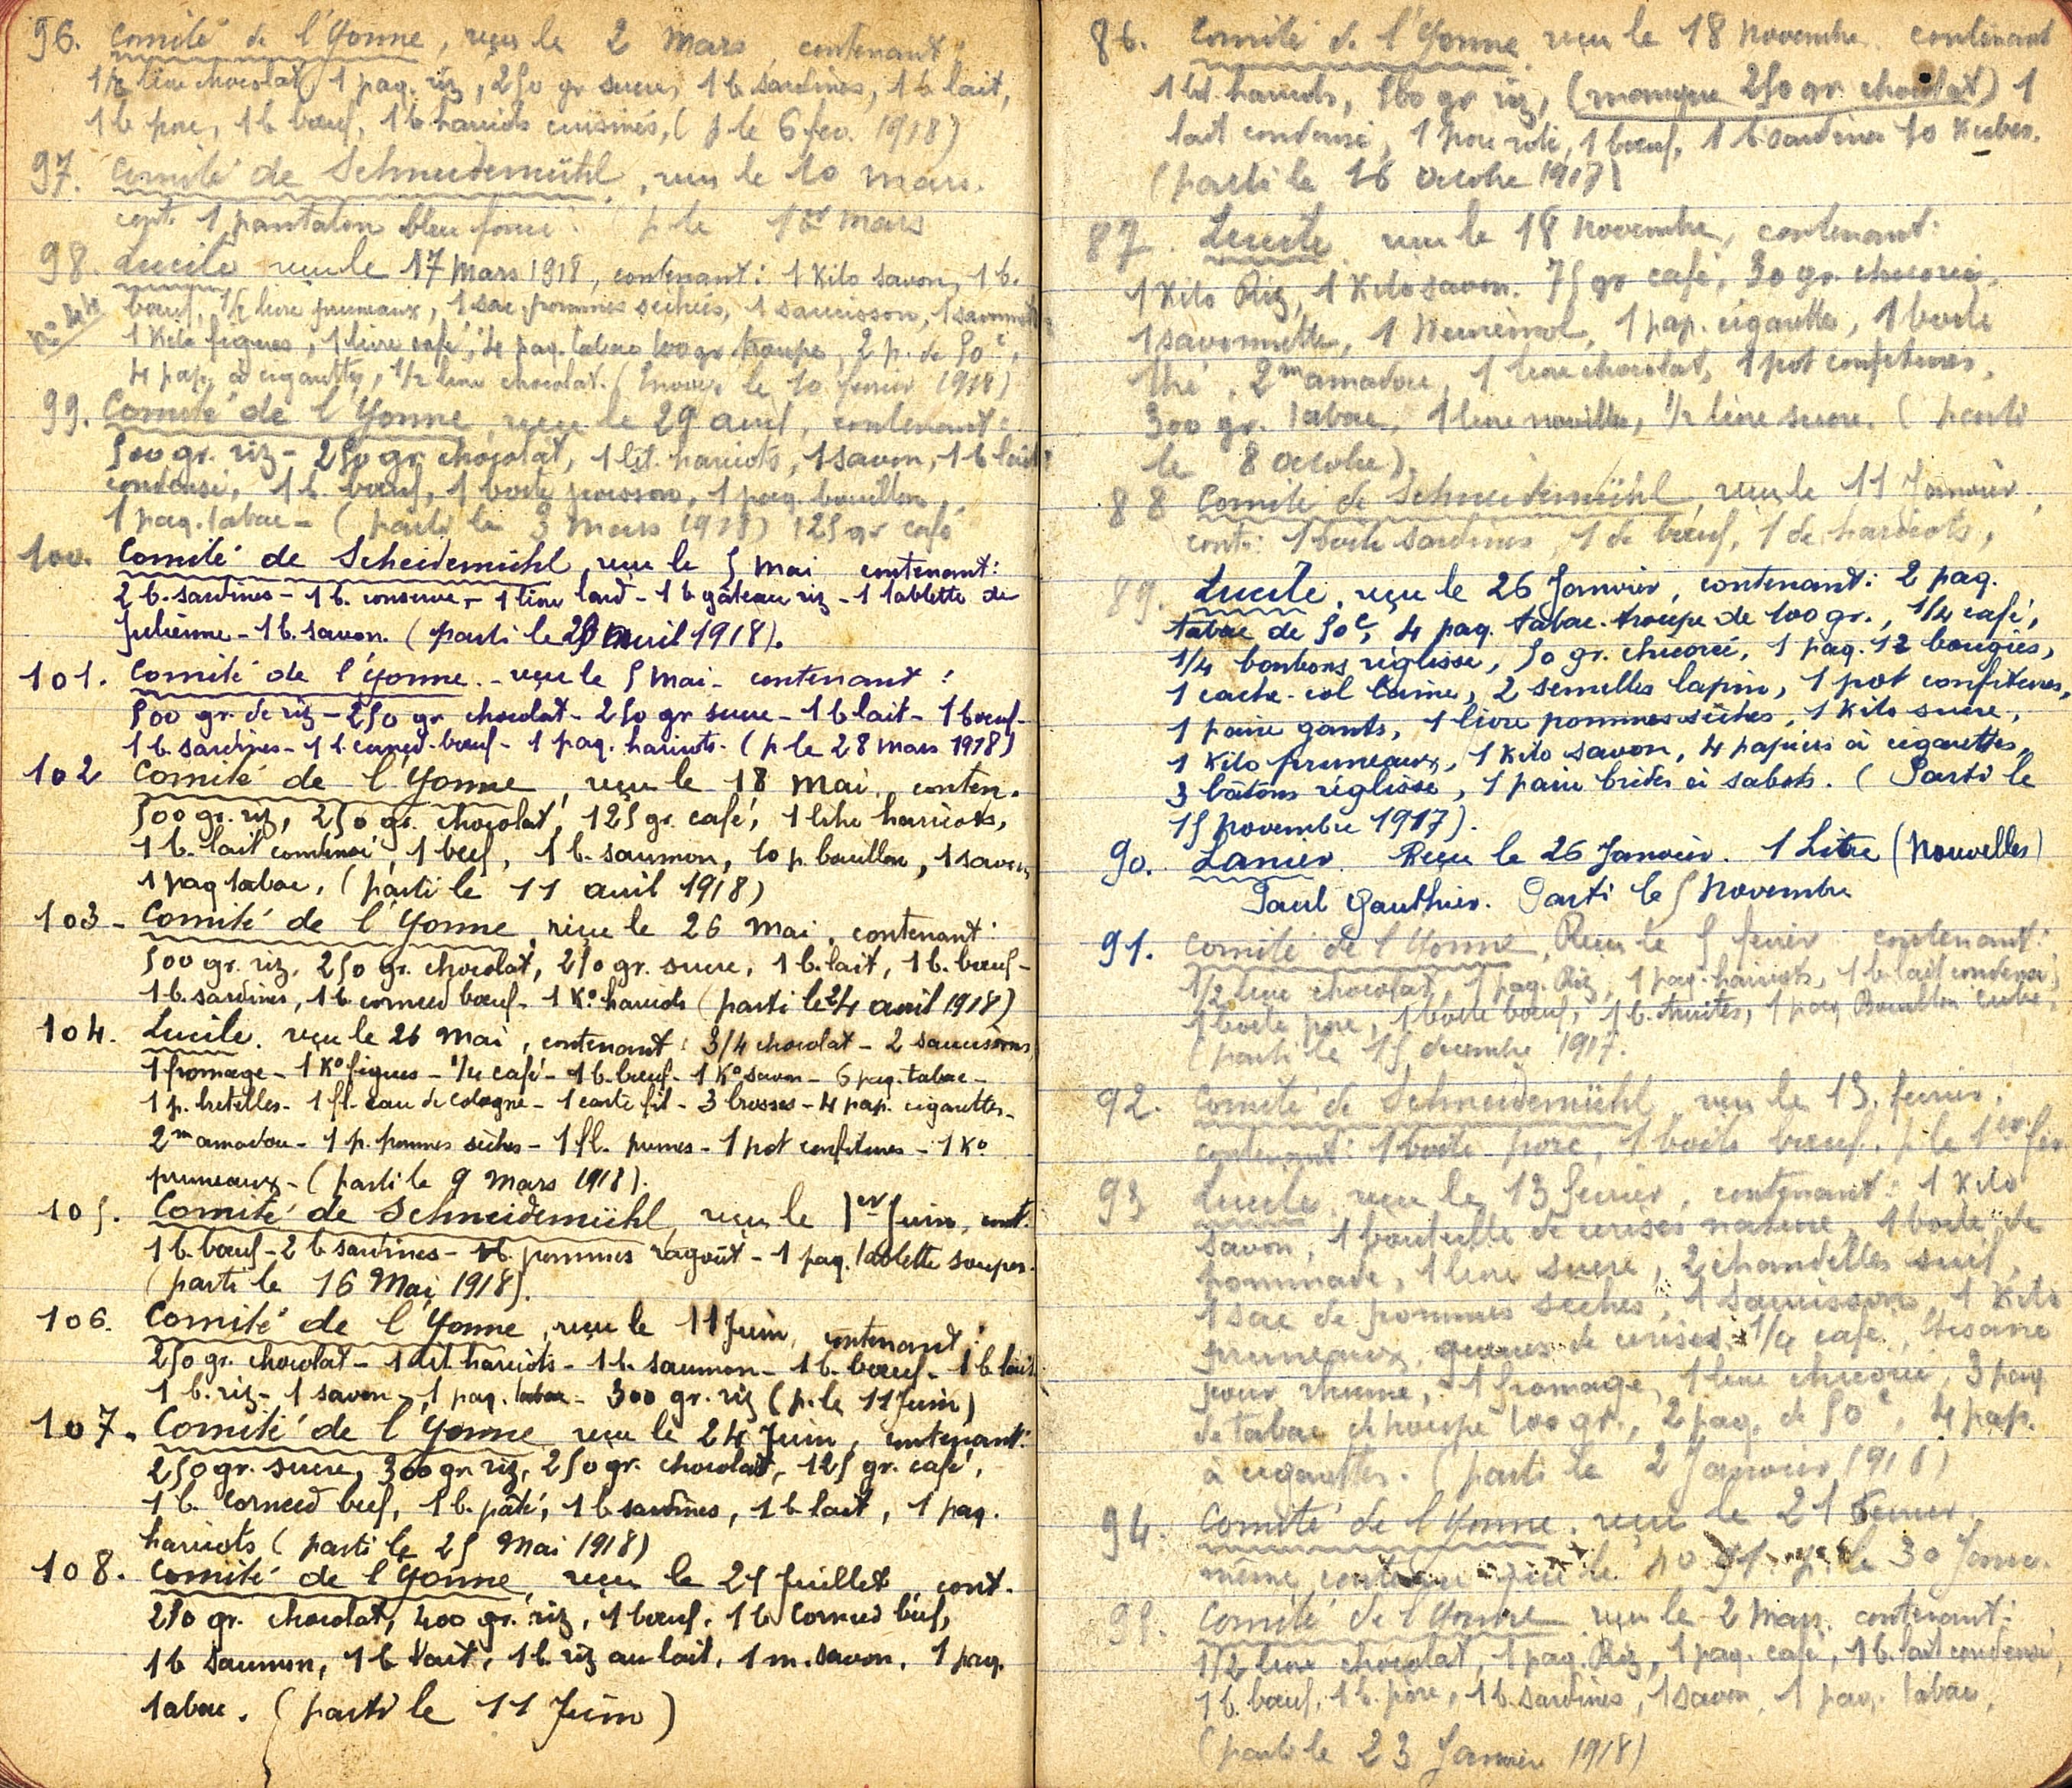 96. Comité de l'Yonne, reçu le 2 Mars, contenant
1/2 livre chocolat, 1 paq. riz, 250 gr sucre, 1 b sardines, 1 b lait,
1 b porc, 1 b bœuf, 1 b haricots cuisinés, ( p le 6 fev. 1918)
97. Comité de Schneidemühl, reçu le 10 mars.
cont. 1 pantalon bleu foncé p le 1er Mars
98. Lucile reçu le 17 Mars 1918, contenant : 1 Kilo savon, 1 b.
bœuf, 1/2 livre pruneaux, 1 sac pommes séchées, 1 saucisson, 1 savonnette
1 Kilo figues, 1 livre café, 4 paq. tabac 100 gr troupe, 2 p. de 50c,
4 pap. à cigarettes, 1/2 livre chocolat. (Envoyé le 10 fevrier 1918)
99. Comité de l'Yonne, reçu le 29 avril, contenant :
500 gr. riz - 250 gr chocolat, 1 lit. haricots, 1 savon, 1 b lait
condensé, 1 b. bœuf, 1 boite poisson, 1 paq. bouillon,
1 paq. tabac - ( parti le 3 Mars 1918) 125 gr café
100. Comité de Scheidemühl, reçu le 5 mai contenant :
2 b. sardines - 1 b. conserve - 1 livre lard - 1 b gâteau riz - 1 tablette de
Julienne - 1 b. savon. ( parti le 20 avril 1918).
101. Comité de l'Yonne. - reçu le 5 Mai - contenant :
500 gr. de riz - 250 gr chocolat - 250 gr sucre - 1 b lait - 1 bœuf -
1 b. sardines - 1 b. corned-bœuf - 1 paq. haricots. ( p le 28 Mars 1918)
102 Comité de l'Yonne, reçu le 18 Mai, conten.
500 gr. riz, 250 gr. chocolat, 125 gr. café, 1 litre haricots,
1 b. lait condensé, 1 beef, 1 b. saumon, 10 p. bouillon, 1 savon,
1 paq tabac, ( parti le 11 avril 1918)
103 - Comité de l'Yonne, reçu le 26 Mai, contenant :
500 gr. riz, 250 gr. chocolat, 250 gr. sucre, 1 b. lait, 1 b. bœuf -
1 b. sardines, 1 b. corneed bœuf - 1 K° haricots ( parti le 24 avril 1918)
104. Lucile. reçu le 26 Mai, contenant : 3/4 chocolat - 2 saucissons
1 fromage - 1 K° figues - 1/4 café - 1 b. bœuf - 1 K° savon - 6 paq. tabac -
1 p. bretelles - 1 fl. eau de Cologne - 1 carte fil - 3 brosses - 4 pap. cigarettes -
2m amadou - 1 p. pommes sèches - 1 fl. prunes - 1 pot confitures - 1 K°
pruneaux - ( parti le 9 Mars 1918).
105. Comité de Schneidemühl, reçu le 1er Juin, cont.
1 b. bœuf - 2 b sardines - 1 b. pommes ragoût - 1 paq. tablette soupes.
( parti le 16 Mai 1918).
106. Comité de l'Yonne, reçu le 11 Juin, contenant :
250 gr. chocolat - 1 lit haricots - 1 b. saumon - 1 b. bœuf - 1 b lait
1 b. riz - 1 savon - 1 paq. tabac - 300 gr. riz ( p. le 11 Juin)
107. Comité de l'Yonne, reçu le 24 Juin, contenant :
250 gr. sucre, 300 gr. riz, 250 gr. chocolat, 125 gr. café,
1 b. Corneed beef, 1 b. pâté, 1 b sardines, 1 b lait, 1 paq.
haricots ( parti le 25 Mai 1918)
108. Comité de l'Yonne, reçu le 21 Juillet, cont.
250 gr. chocolat, 400 gr. riz, 1 bœuf. 1 b Corneed beef,
1 b saumon, 1 b lait, 1 b. riz au lait, 1 m. savon, 1 paq.
tabac. ( parti le 11 Juin )
86. Comité de l'Yonne, reçu le 18 Novembre contenant
1 lit. haricots, 500 gr riz, (manque 250 gr. chocolat) 1
lait condensé, 1 porc rôti, 1 bœuf, 1 b sardines 10 Kubes.
(parti le 16 Octobre 1917)
87. Lucile reçu le 18 Novembre, contenant :
1 Kilo Riz, 1 Kilo savon. 75 gr café, 30 gr. chicorée,
1 savonnette, 1 , 1 pap. cigarettes, 1 boite
thé, 2m amadou, 1 livre chocolat, 1 pot confitures,
300 gr. tabac, 1 livre nouilles, 1/2 livre sucre. ( parti
le 8 octobre).
88 Comité de Schneidemühl, reçu le 11 Janvier,
cont : 1 boite sardines, 1 de bœuf, 1 de haricots,
89. Lucile, reçu le 26 Janvier, contenant : 2 paq.
tabac de 50c, 4 paq. tabac-troupe de 100 gr., 1/4 café,
1/4 bonbons réglisse, 50 gr. chicorée, 1 paq. 12 bougies,
1 cache-col laine, 2 semelles lapin, 1 pot confitures,
1 paire gants, 1 livre pommes sèches, 1 Kilo sucre,
1 Kilo pruneaux, 1 Kilo savon, 4 papiers à cigarettes,
3 bâtons réglisse, 1 paire brides à sabots. ( Parti le
15 Novembre 1917).
90. Lanier. Reçu le 26 Janvier. 1 Litre (Nouvelles)
Paul Gauthier. Parti le 5 Novembre
91. Comité de l'Yonne, Reçu le 5 fevrier contenant :
1/2 livre chocolat, 1 paq. Riz, 1 paq. haricots, 1 b lait condensé,
1 boite porc, 1 boite bœuf, 1 b. truites, 1 paq Bouillon cube.
(parti le 15 decembre 1917.
92. Comité de Schneidemühl, reçu le 13. fevrier,
contenant : 1 boite porc, 1 boite bœuf. p le 1er fev
93 Lucile, reçu le 13 fevrier, contenant : 1 Kilo
savon, 1 bouteille de cerises nature, 1 boite de
pommade, 1 livre sucre, 2 chandelles suif,
1 sac de pommes sèches, 1 saucisson, 1 Kilo
pruneaux, queues de cerises, 1/4 café, tisane
pour rhume, 1 fromage, 1 livre chicorée, 3 paq
de tabac troupe 100 gr., 2 paq. de 50c, 4 pap.
à cigarettes. ( parti le 2 Janvier 1918)
94. Comité de l'Yonne. reçu le 21 Fevrier
même contenu le 30 Janv.
95. Comité de l'Yonne reçu le 2 Mars. contenant :
1/2 livre chocolat, 1 paq. Riz, 1 paq. café, 1 b. lait condensé,
1 b. bœuf, 1 b. porc, 1 b. sardines, 1 savon, 1 paq. tabac,
(parti le 23 Janvier 1918)